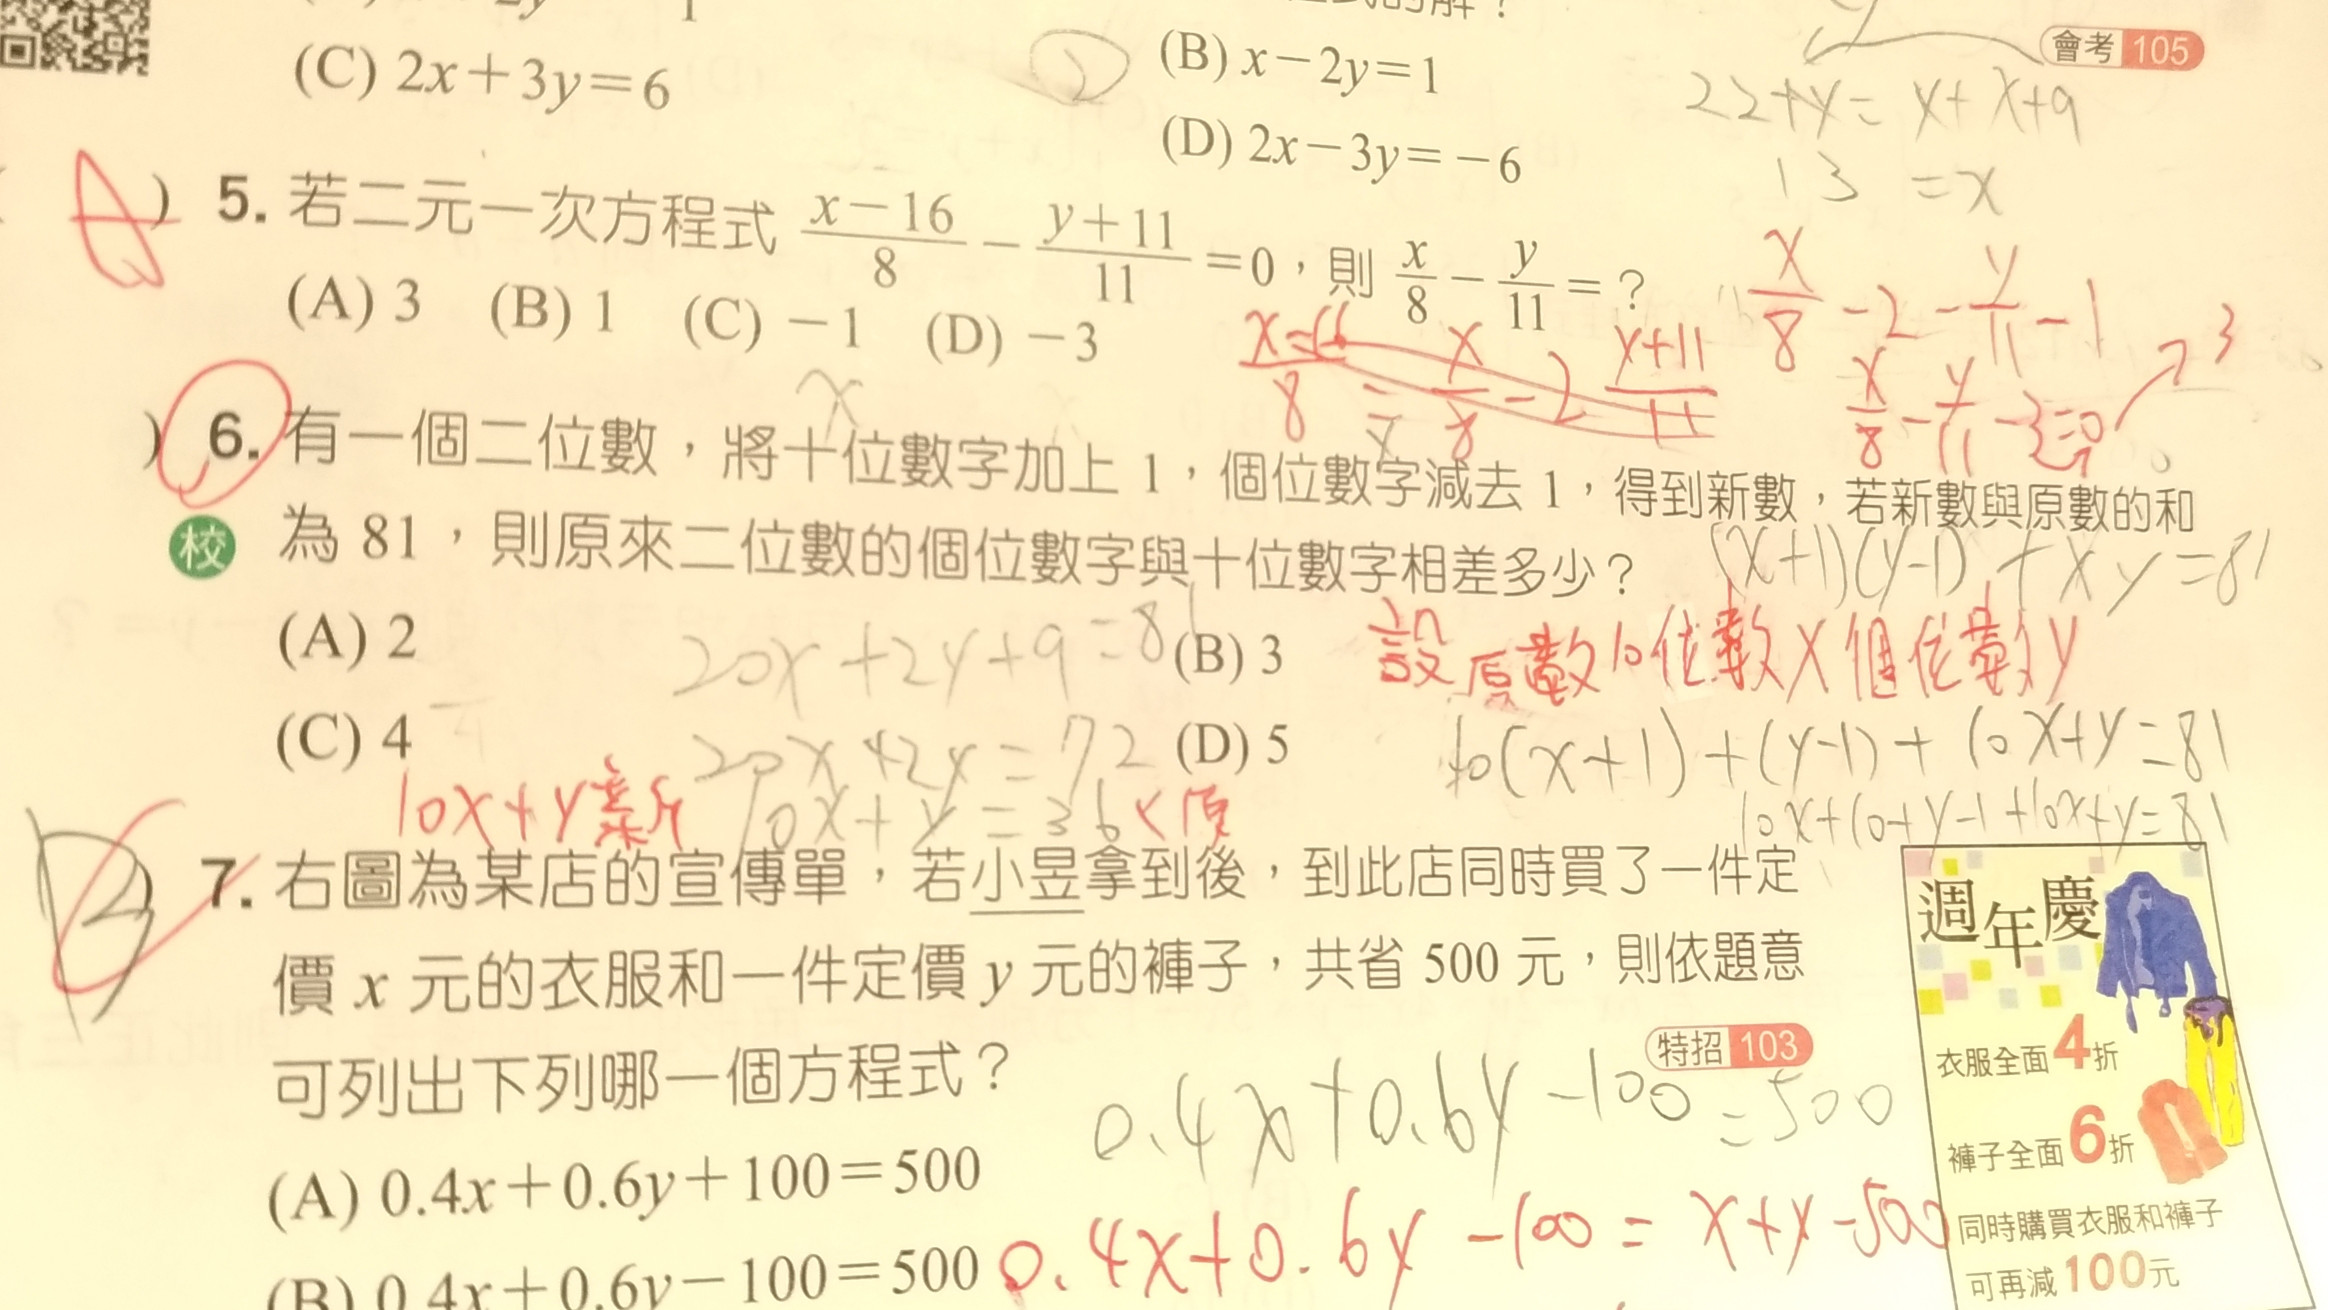 (C) 2x+3y=6
(B) x-2y=1
(D) 2x-3y=-6
會考 105
22+y=y+x+9
13 =x
A ) 5. 若二元一次方程式 \frac{x-16}{8} - \frac{y+11}{11} =0,則 \frac{x}{8} - \frac{y}{11} =?
(A) 3 (B) 1 (C) -1 (D) -3
\frac{x}{8} -2 - \frac{y}{11} -1
\frac{x-16}{8} = \frac{x}{8} -2 \frac{y+11}{11}
\frac{x}{8} - \frac{y}{11} -3=0 3
) 6. 有一個二位數,將十位數字加上 1,個位數字減去 1,得到新數,若新數與原數的和
校 為 81,則原來二位數的個位數字與十位數字相差多少?
(x+1)(y-1)+xy=81
(A) 2
(B) 3
20x+2y+9=81
設原數10位數x個位數y
(C) 4
(D) 5
20x+2y=72
10(x+1)+(y-1)+10x+y=81
10x+y新
10x+y=36<原
10x+10+y-1+10x+y=81
B ) 7. 右圖為某店的宣傳單,若小昱拿到後,到此店同時買了一件定
價 x 元的衣服和一件定價 y 元的褲子,共省 500 元,則依題意
可列出下列哪一個方程式?
特招 103
0.4x+0.6y-100=500
(A) 0.4x+0.6y+100=500
(B) 0.4x+0.6y-100=500
0.4x+0.6y-100=x+y-500
週年慶
衣服全面4折
褲子全面6折
同時購買衣服和褲子
可再減100元